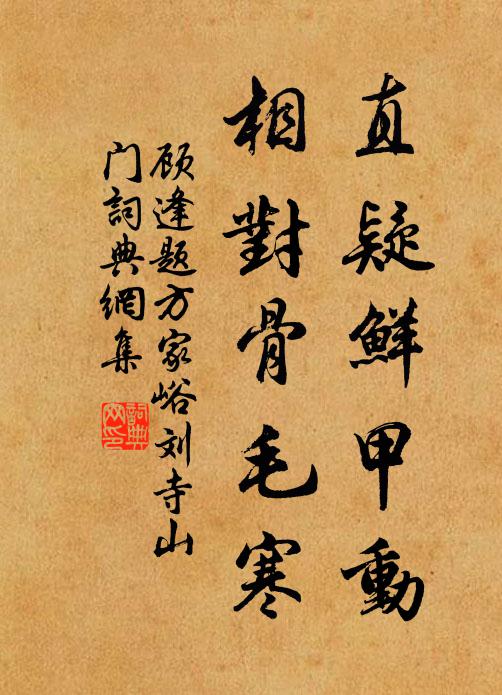 直疑鮮甲動
相對骨毛寒
顾逢题方家峪刘寺山
门詞典網集
詞典
网印